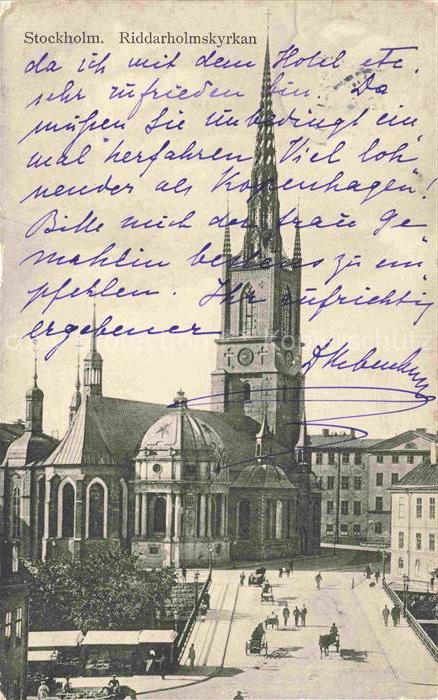 Stockholm. Riddarholmskyrkan
da ich mit dem Hotel etc.
sehr zufrieden bin. Da
müßen Sie unbedingt ein
mal herfahren. Viel loh
nender als Kopenhagen!
Bitte mich der Frau Ge
mahlin bestens zu em
pfehlen. Ihr aufrichtig
ergebener